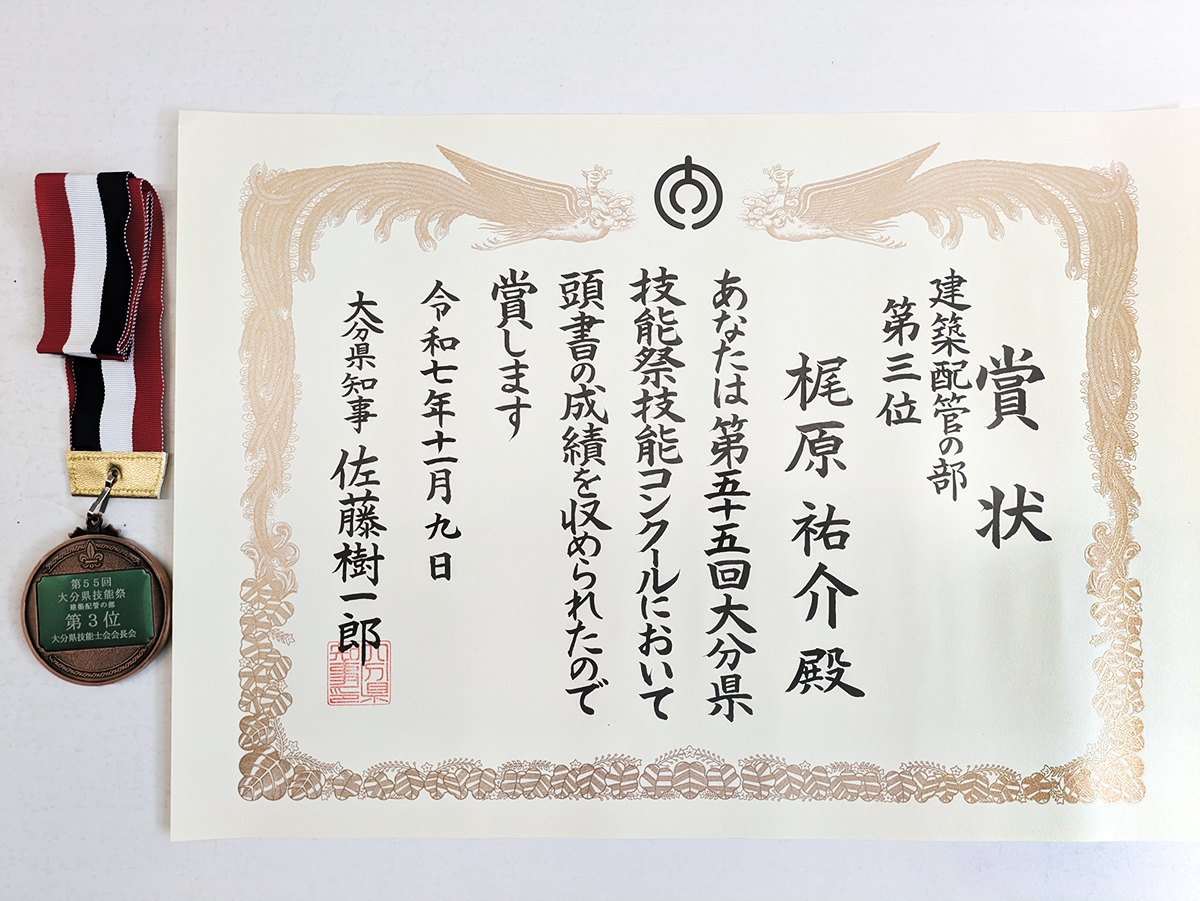 賞状
建築配管の部
第三位
梶原祐介殿
あなたは第五十五回大分県
技能祭技能コンクールにおいて
頭書の成績を収められたので
賞します
令和七年十一月九日
大分県知事 佐藤樹一郎
大分県
知事印
第55回
大分県技能祭
建築配管の部
第3位
大分県技能士会会長会